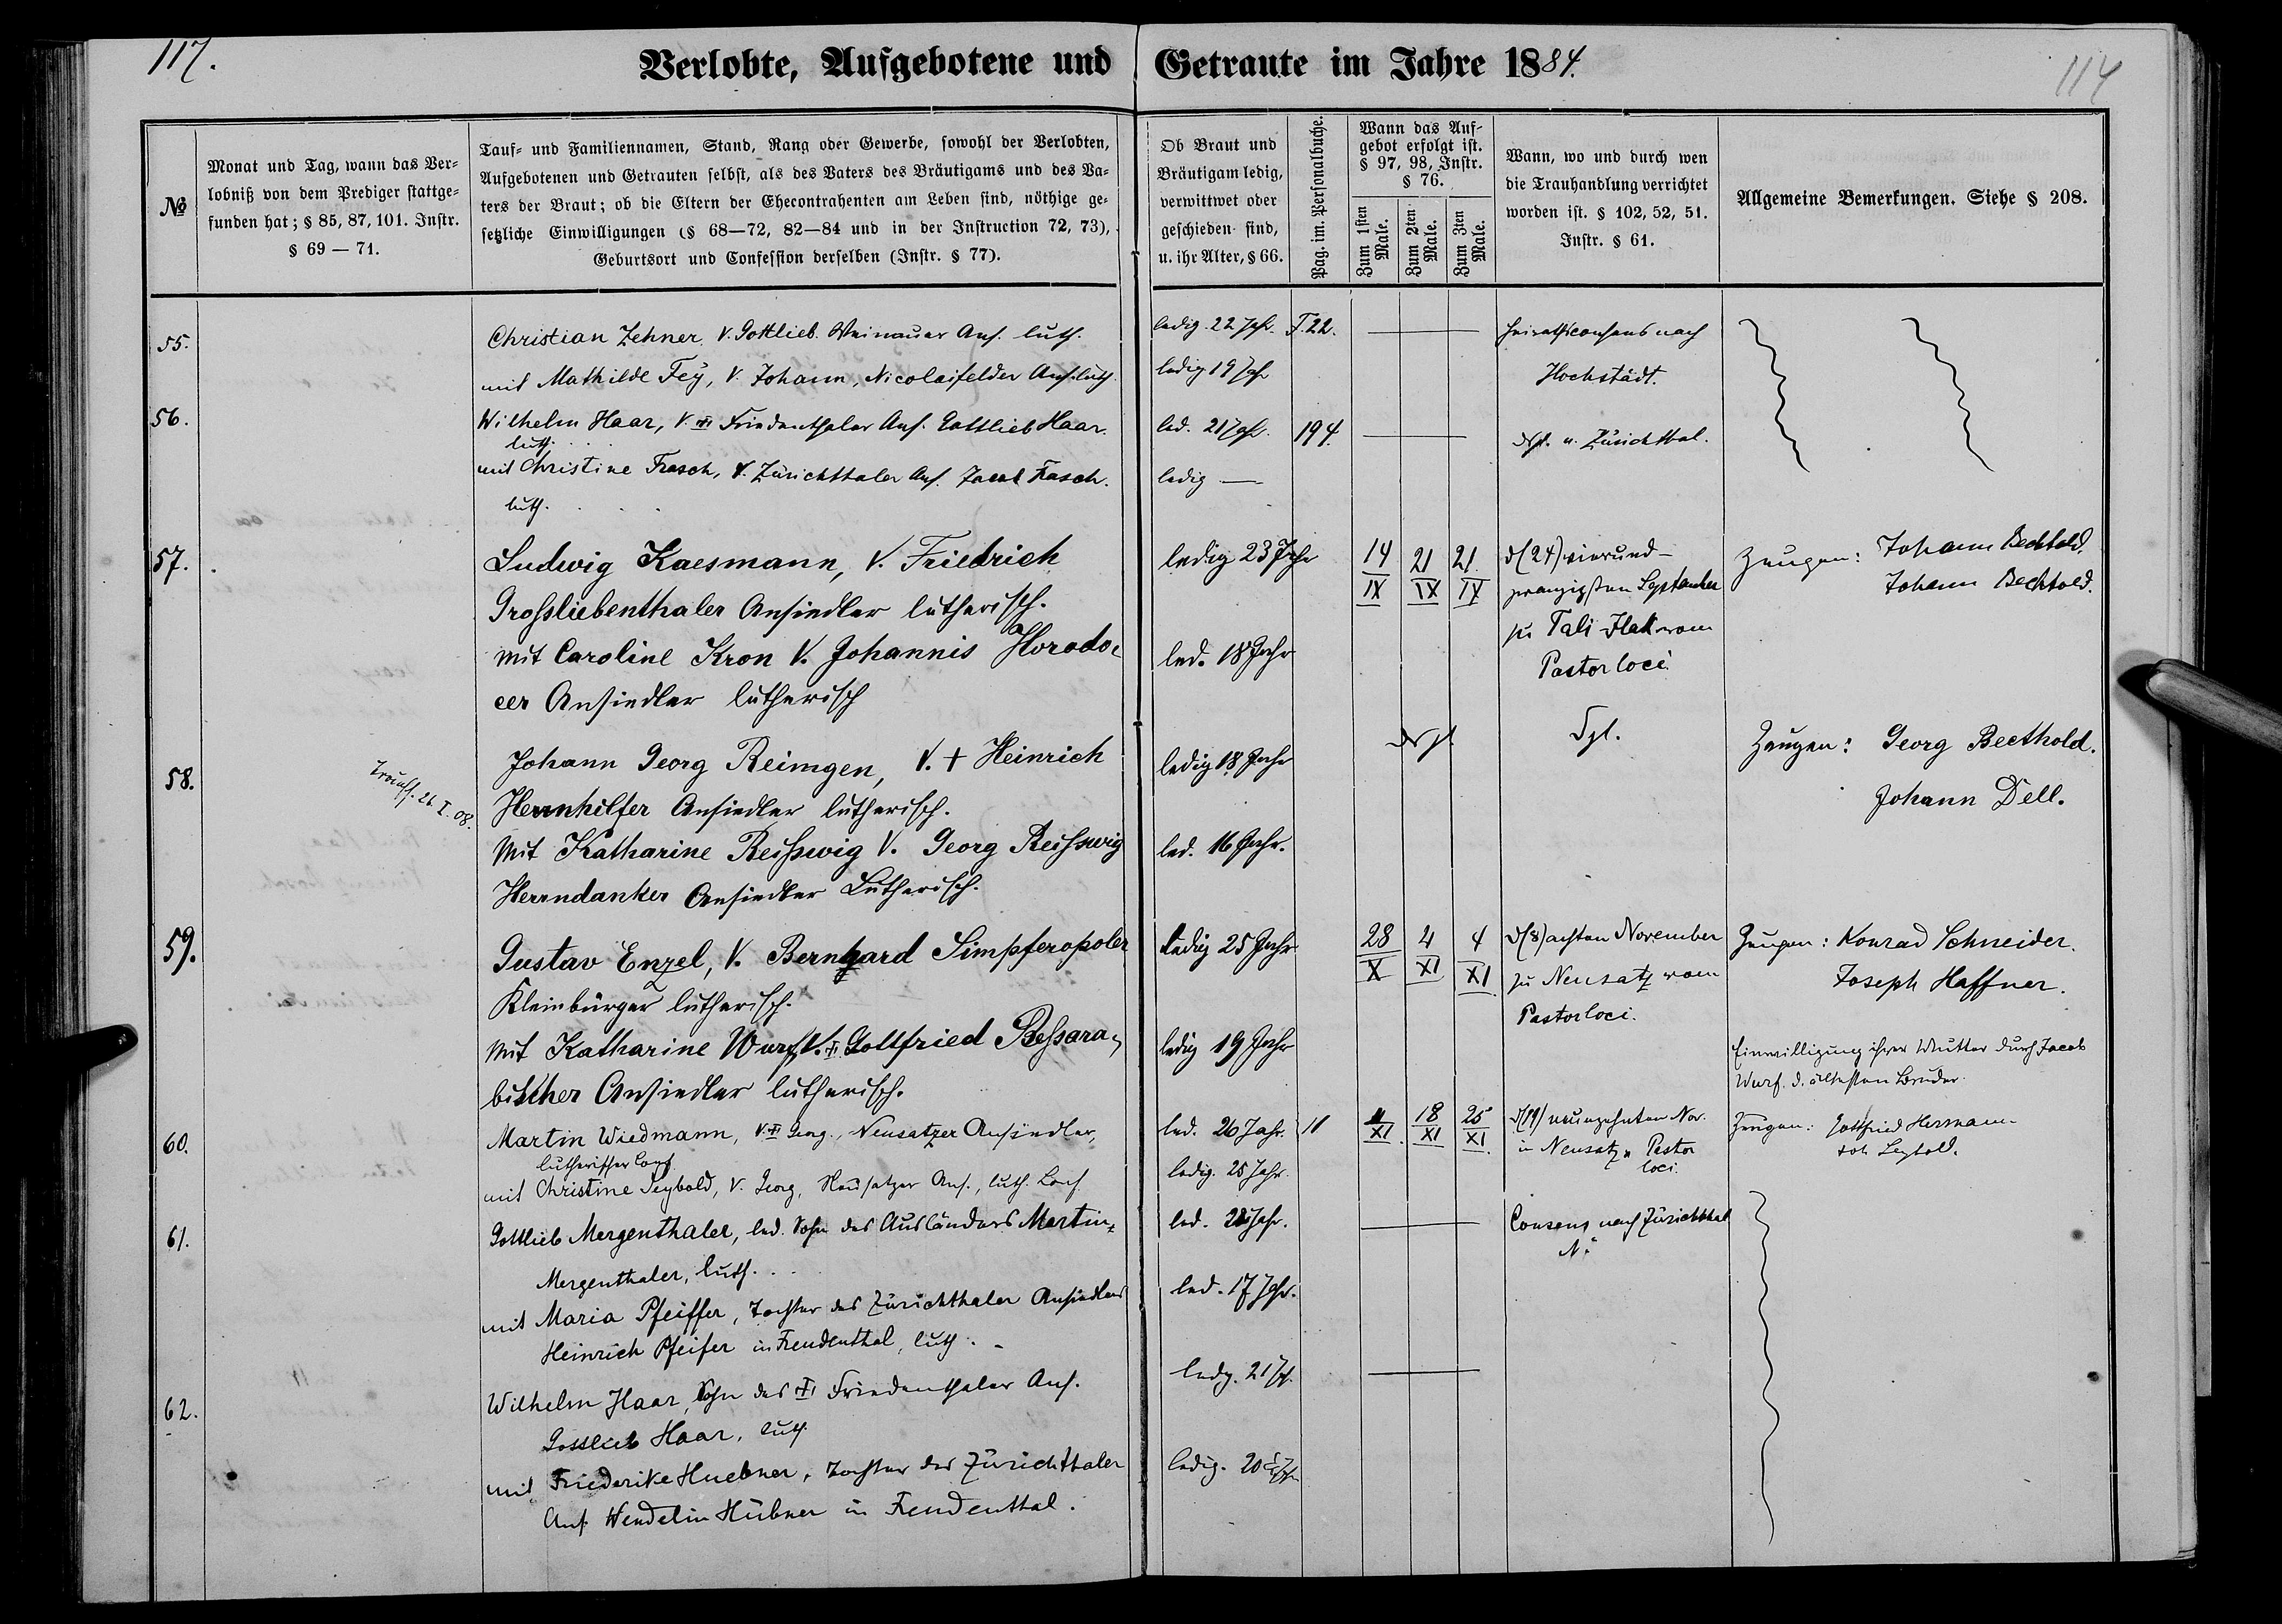 117.
Verlobte, Aufgebotene und Getraute im Jahre 1884.
114
№
Monat und Tag, wann das Ver-
lobniß von dem Prediger stattge-
funden hat; § 85, 87, 101. Instr.
§ 69 — 71.
Tauf- und Familiennamen, Stand, Rang oder Gewerbe, sowohl der Verlobten,
Aufgebotenen und Getrauten selbst, als des Vaters des Bräutigams und des Va-
ters der Braut; ob die Eltern der Ehecontrahenten am Leben sind, nöthige ge-
setzliche Einwilligungen (§ 68—72, 82—84 und in der Instruction 72, 73),
Geburtsort und Confession derselben (Instr. § 77).
Ob Braut und
Bräutigam ledig,
verwittwet oder
geschieden sind,
u. ihr Alter, § 66.
Pag. im. Personalbuche.
Wann das Auf-
gebot erfolgt ist.
§ 97, 98, Instr.
§ 76.
Zum 1sten
Male.
Zum 2ten
Male.
Zum 3ten
Male.
Wann, wo und durch wen
die Trauhandlung verrichtet
worden ist. § 102, 52, 51.
Instr. § 61.
Allgemeine Bemerkungen. Siehe § 208.
55.
Christian Zehner V. Gottlieb Weinauer Ans. luth.
mit Mathilde Fey, V. Johann, Nicolaifelder Ans. luth.
ledig. 22 Jahr. F. 22.
ledig 19 Jahr
Heirathsconsens nach
Hochstädt.
56.
Wilhelm Haar, V. Friedenthaler Ans. Gottlieb Haar.
luth.
mit Christine Frasch, V. Zürichthaler Ans. Jacob Frasch.
luth.
led. 21 Jahr. 194.
ledig —
dgl. n. Zürichthal.
57.
Ludwig Kaesmann, V. Friedrich
Grossliebenthaler Ansiedler lutherisch.
mit Caroline Kron V. Johannis Horodo-
cer Ansiedler lutherisch
ledig 23 Jahr
led. 18 Jahr
14 IX 21 IX 21 IX
d (24) vierund-
zwanzigsten September
zu Tali-Ilak vom
Pastor loci
Zeugen: Johann Bechtold.
Johann Bechtold.
58.
26 I. 08.
Johann Georg Reimgen, V. + Heinrich
Herrnhilfer Ansiedler lutherisch.
Mit Katharine Reisswig V. Georg Reisswig
Herrndanker Ansiedler Lutherisch.
ledig 18 Jahr
led. 16 Jahr.
dgl.
Dgl.
Zeugen: Georg Becthold.
Johann Dell.
59.
Gustav Enzel, V. Bernhard Simpferopoler
Kleinbürger lutherisch.
Mit Katharine Wurf, V. Gottfried Bessara-
bischer Ansiedler lutherisch.
ledig 25 Jahr
ledig 19 Jahr
28 X 4 XI 4 XI
d (8) achten November
zu Neusatz vom
Pastor loci.
Zeugen: Konrad Schneider.
Joseph Haffner.
Einwilligung ihrer Mutter durch Jacob
Wurf. d. ältesten Bruder.
60.
Martin Wiedmann, V. Georg., Neusatzer Ansiedler,
lutherischer Conf.
mit Christine Seybold, V. Georg, Neusatzer Ans., luth. Conf
led. 26 Jahr. 11
ledig. 25 Jahr.
11 XI. 18 XI 25 XI.
d (19) neunzehnten Nov.
in Neusatz v. Pastor
loci.
Zeugen: Gottfried Hermann.
Joh Seybold.
61.
Gottlieb Mergenthaler, led. Sohn des Ausländers Martin
Mergenthaler, luth.
mit Maria Pfeiffer, Tochter des Zürichthaler Ansiedlers
Heinrich Pfeifer in Freudenthal, luth.
led. Jahr.
led. 17 Jahr.
Consens nach Zürichthal
N.
62.
Wilhelm Haar, Sohn des Friedenthaler Ans.
Gottlieb Haar, luth.
mit Friederike Huebner, Tochter des Zürichthaler
Ans. Wendelin Hübner in Freudenthal.
ledg. 21 J.
ledig. 20